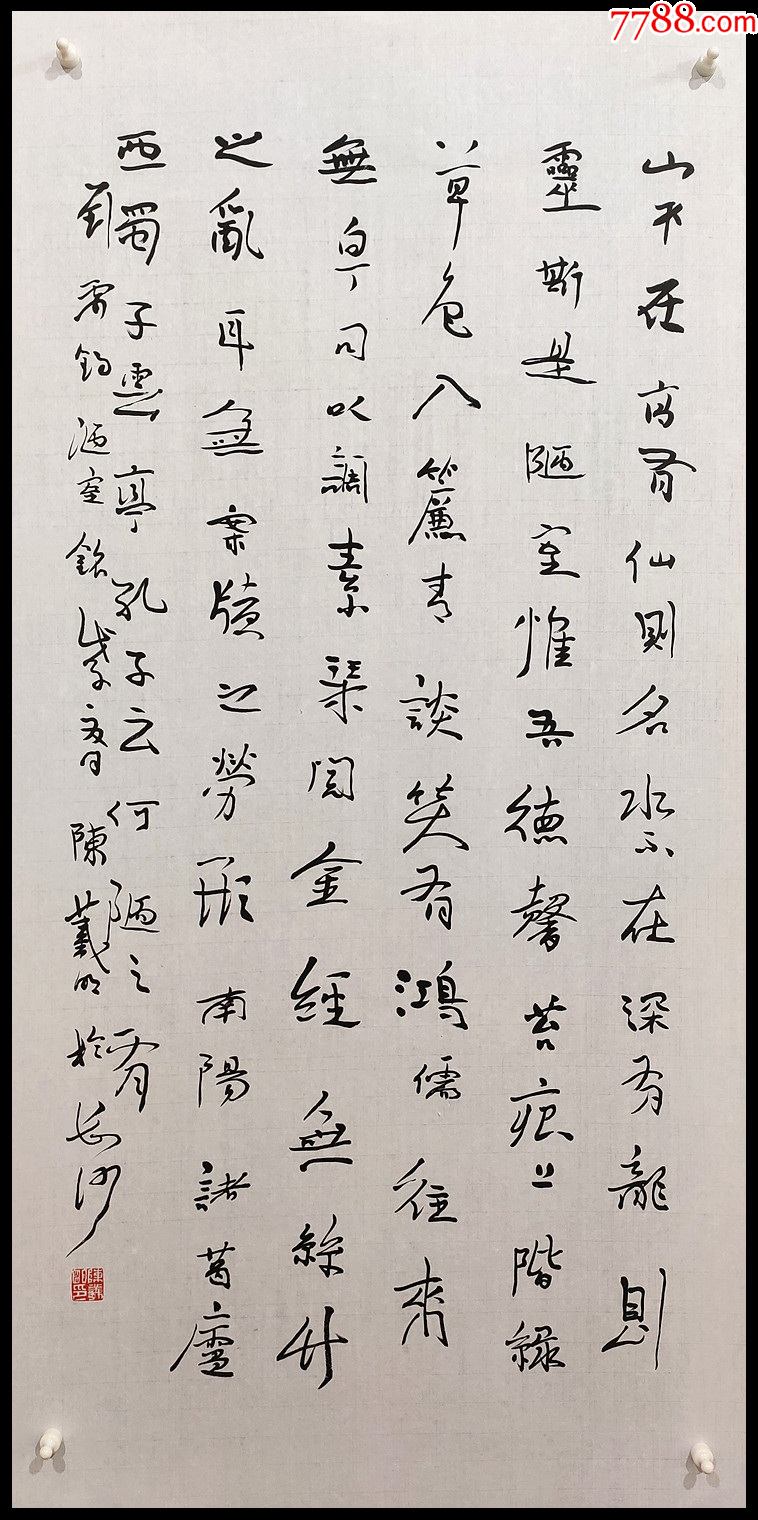 7788.com
山不在高有仙則名水不在深有龍則
靈斯是陋室惟吾德馨苔痕上階綠
草色入簾青談笑有鴻儒往來
無白丁可以調素琴閱金經無絲竹
之亂耳無案牘之勞形南陽諸葛廬
西蜀子雲亭孔子云何陋之有
劉禹錫陋室銘 陳羲明於長沙